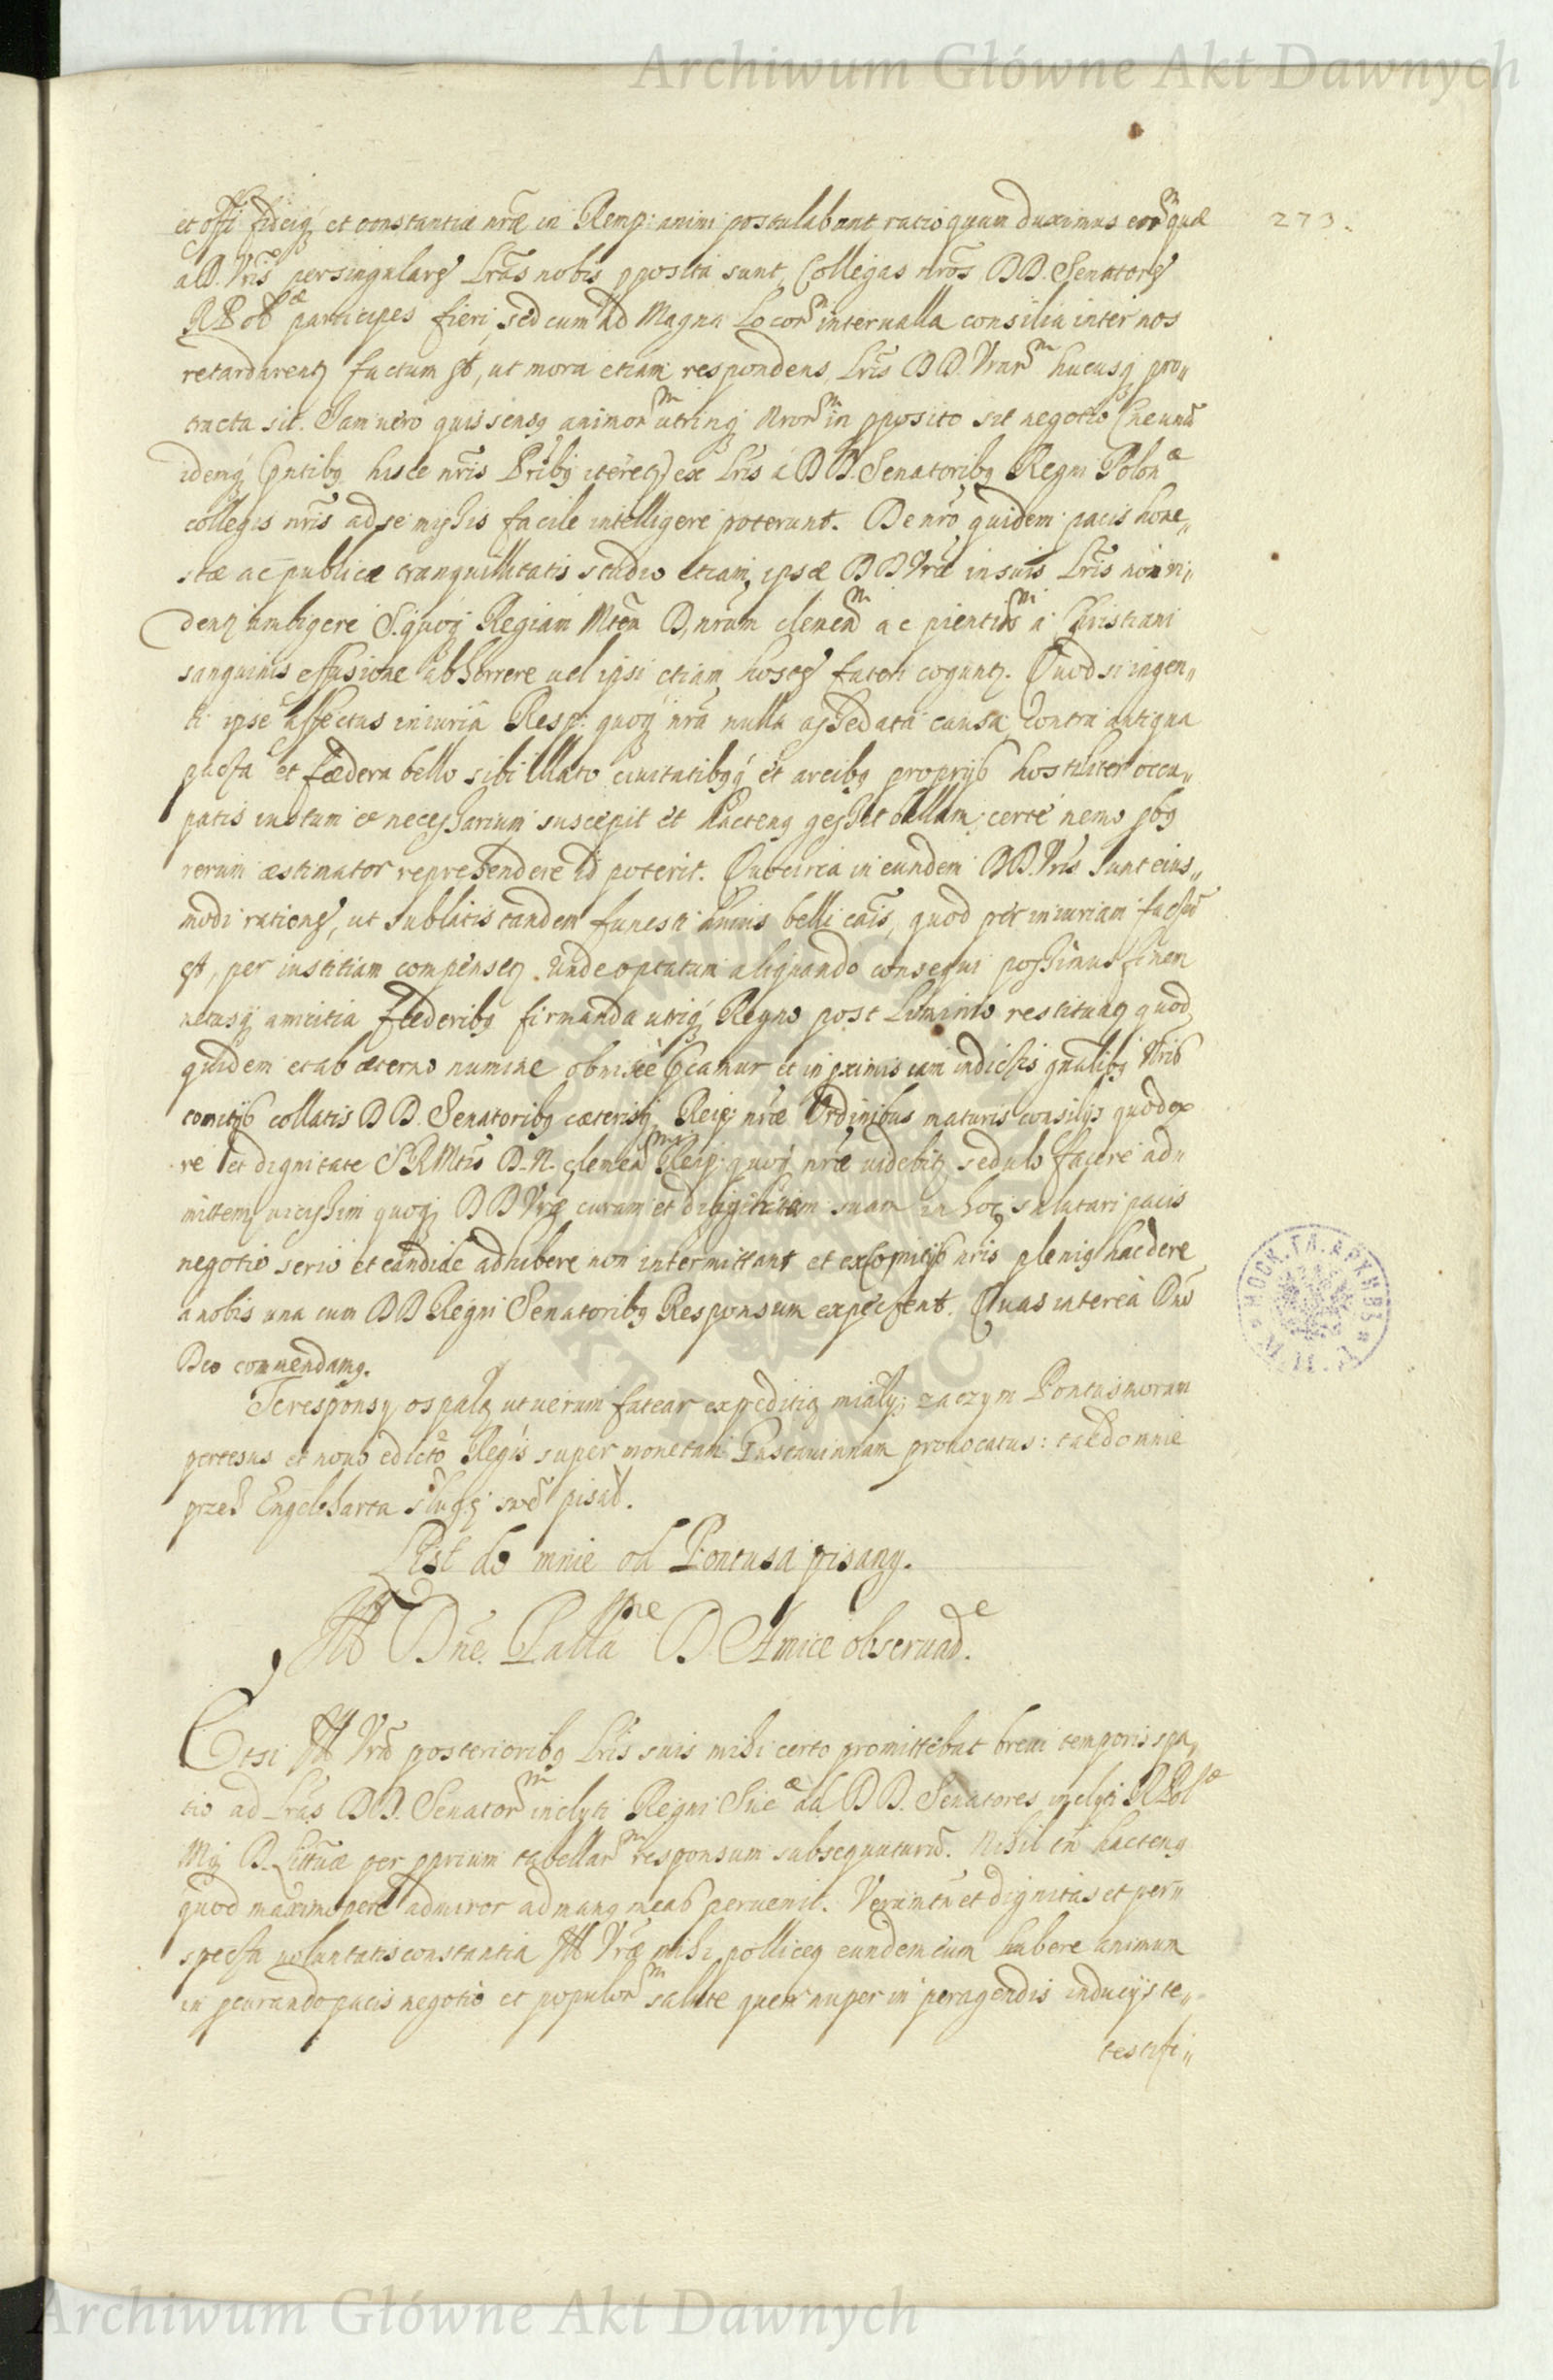 Archiwum Główne Akt Dawnych
273.
et offi fideiq et constantiæ nræ in Remp: animi postulabant ratio quam duximus eorm quæ
a D. Vris per singulares Lras nobis pposita sunt, Collegas nros DD. Senatores
participes fieri, sed cum ad Magna Locorm interualla consilia inter nos
retardarentq factum st, ut mora etiam respondens Lris DD. Vrarm hucusq pro„
tracta sit. Iam uero quis sensq animorm utrinq Nrorm in pposito sit negotio
idemq hisce nris ex Lris a DD. Senatoribq Regni Polonæ
collegis nris ad se missis facile intelligere poterunt. De nro quidem pacis hone„
stæ ac publicæ tranquillitatis studio etiam ipsæ DD Vræ in suis Lris non ui„
dentq ambigere S. quoq Regiam Mtem D. nrum clemenm ac pientissm a Christiani
sanguinis effusione abhorrere uel ipsi etiam hostes fateri coguntq. Quod si ingen„
ti ipse affectus iniuria Resp: quoq nra nulla assedata causa contra antiqua
pacta et fœdera bello sibi illato ciuitatibqq et arcibq proprijs hostiliter occu„
patis iustum et necessarium suscepit et hactenq gessit bellum: certe nemo pbq
rerum æstimator reprehendere id poterit. Quocirca in eundem DD. Vris sunt eius„
modi rationes, ut sublatis tandem funesti huius belli cais, quod per iniuriam factu
st, per iustitiam compensetq. Unde optatum aliquando consequi possimus finem
uetusq amicitia fœderibq firmanda utriq Regno post Liminio restituatq quod
quidem et ab æterno numine obnixe pcamur et in pximis iam indictis gnalibq Nris
comitijs collatis DD. Senatoribq cæterisq Reip: nræ Ordinibus maturis consilijs quod ex
re et dignitate SRMtis D. N. clemenmi Reip: quoq nræ uidebitq sedulo facere ad„
nittemq uicissim quoq DD Vræ curam et diligentiam suam in hoc salutari pacis
negotio serio et candide adhibere non intermittant et ex Comitijs nris plenig hac de re
a nobis una cum DD Regni Senatoribq Responsum expectent. Quas interea Dno
Deo commendamq.
Te responsy ospałą ut uerum fatear expeditią miały: zaczym Pontus moram
pertesus et nouo edicto Regis super monetam Gustauianam prouocatus: tak do mnie
przez Engelsharta sługę swe pisał.
List do mnie od Pontusa pisany.
Ill Dne. Palla me D. Amice obseruad.e
Etsi Ill Vra posterioribq Lris suis mihi certo promittebat breui temporis spa„
tio ad Lras DD. Senatorm inclyti Regni Sueæ ad DD. Senatores inclyti RPolæ
Mq D. Littuæ per pprium tabellarm responsum subsequuturu. Nihil tn hactenq
quod maximopere admiror ad manq meas peruenit. Verumtn et dignitas et per„
specta uoluntatis constantia Ill Vræ mihi pollicetq eundem eum habere animum
in pcurando pacis negotio et populorm salute quem nuper in peragendis inducijs te„
testifi„
Archiwum Główne Akt Dawnych